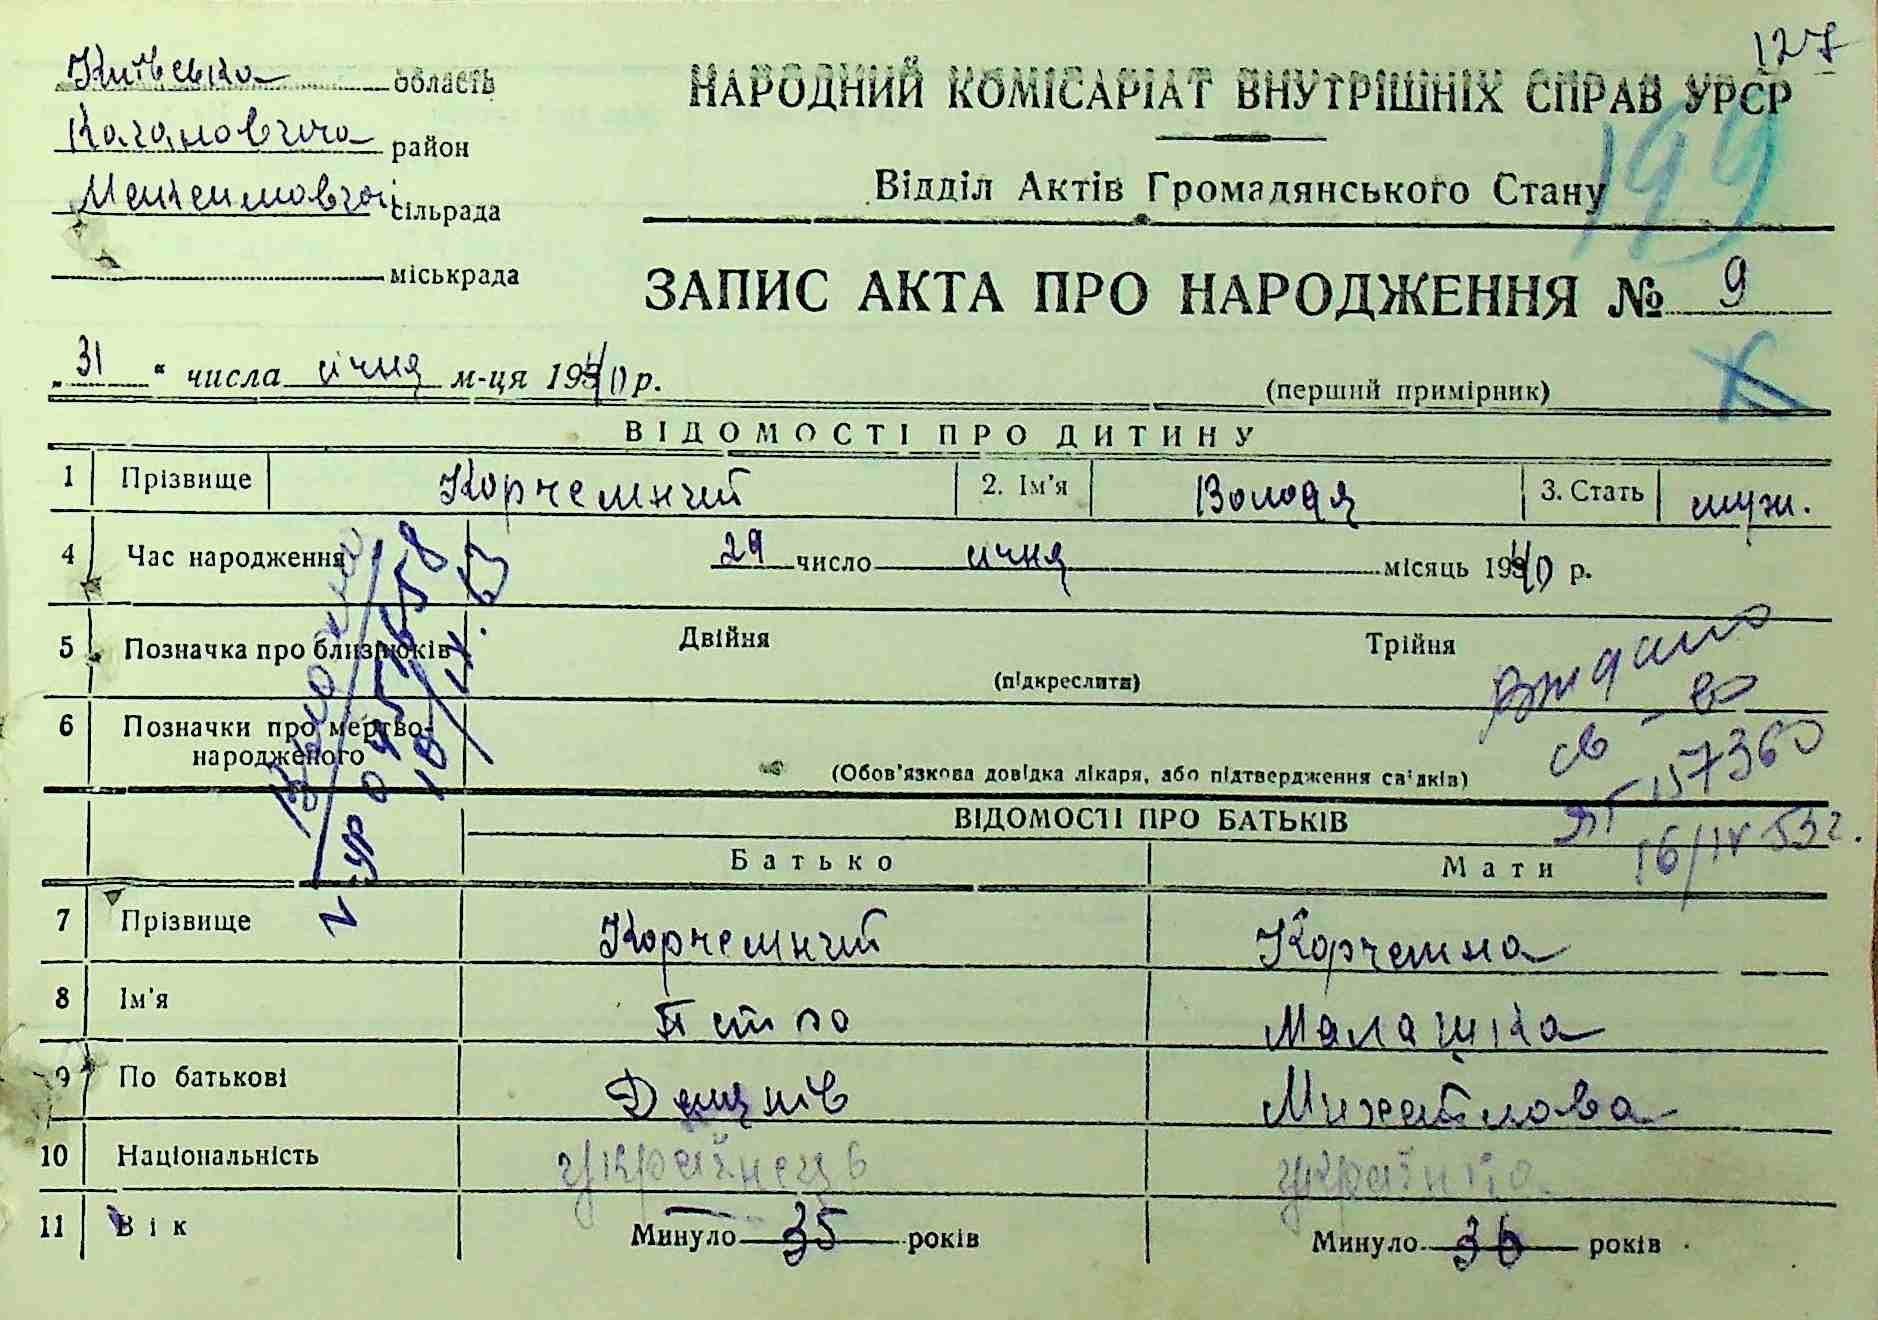 127
Київська область
НАРОДНИЙ КОМІСАРІАТ ВНУТРІШНІХ СПРАВ УРСР
Кагановича район
199
Відділ Актів Громадянського Стану
сільрада
міськрада
ЗАПИС АКТА ПРО НАРОДЖЕННЯ № 9
„31“ числа січня м-ця 1940 р.
(перший примірник)
ВІДОМОСТІ ПРО ДИТИНУ
1 Прізвище Корчемний 2. Ім'я Володя 3. Стать муж.
4 Час народження 29 число січня місяць 1940 р.
5 Позначка про близнюків Двійня Трійня
(підкреслити)
6 Позначки про мертво-
народженого
(Обов'язкова довідка лікаря, або підтвердження свідків)
Видано
св-во
ЯТ 157360
16/IV 53 г.
ВІДОМОСТІ ПРО БАТЬКІВ
Батько Мати
7 Прізвище Корчемний Корчемна
8 Ім'я Петро Малашка
9 По батькові Михайлова
10 Національність українець українка
11 Вік Минуло 35 років Минуло 36 років